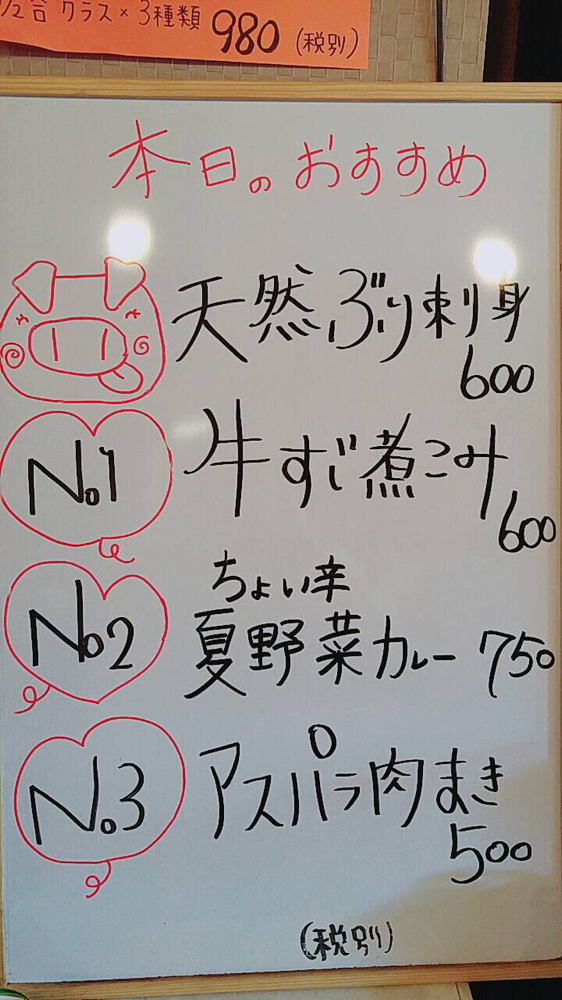 1/2合グラス×3種類 980 (税別)
本日のおすすめ
天然ぶり刺身
600
No.1 牛すじ煮こみ
600
ちょい辛
No.2 夏野菜カレー 750
No.3 アスパラ肉まき
500
(税別)